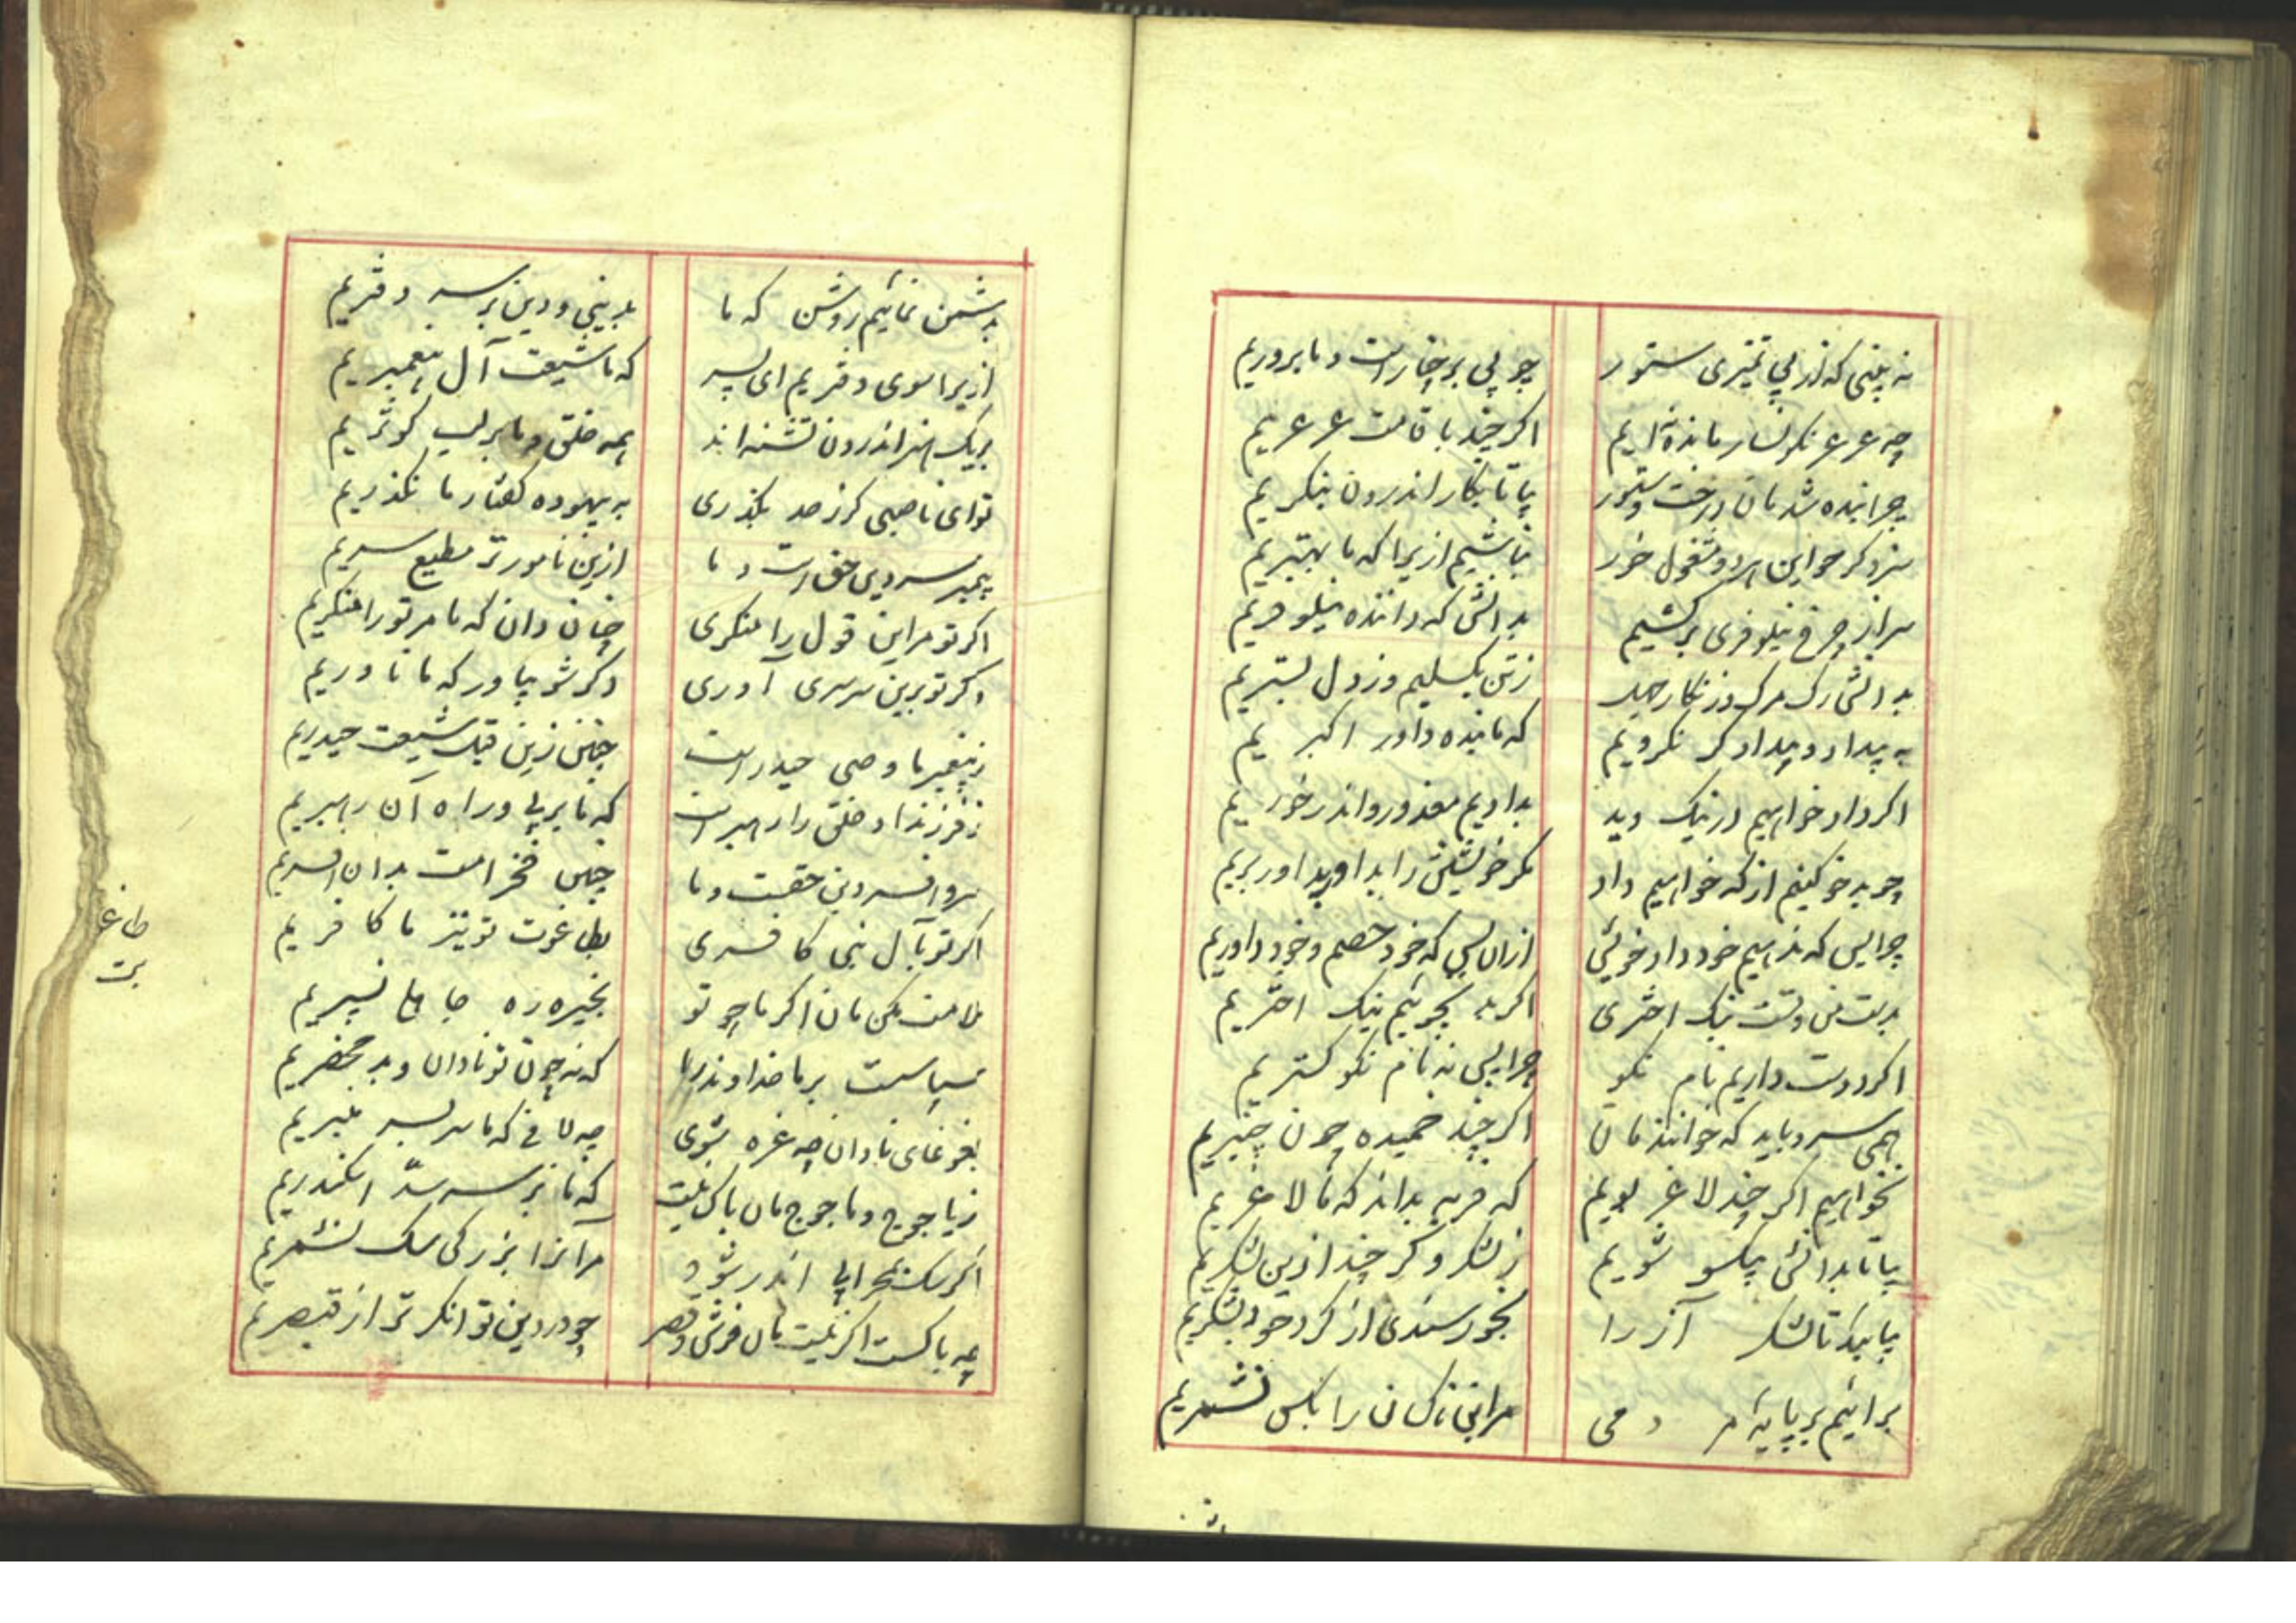 نه بینی که از بی تمیزی ستور
چو بی بر چنار است و ما بروریم
چه عرعر نگونسار مانده‌ایم
اگر چند با قامت عرعریم
چرا بنده شدمان درخت و ستور
بیا تا بکار اندرون بنگریم
سزد گر چو این هر دو مشغول خور
نباشیم ازیرا که ما بهتریم
سر از چرخ نیلوفری برکشیم
بدانش که داننده نیلوفریم
بدانش رگ مرگ و زنگار جهد
ز تن بگسلیم وز دل بستریم
به بیداد و بیدادگر نگرویم
که ما بنده داور اکبریم
اگر داد خواهیم در نیک و بد
بدادیم معذور و اندر خوریم
چو بد خود کنیم از که خواهیم داد
مگر خویشتن را بداور بریم
چرا پس که ندهیم خود داد خویش
ازان پس که خود خصم و خود داوریم
بدست من و تست نیک اختری
اگر بد نجوئیم نیک اختریم
اگر دوست داریم نام نکو
چرا پس نه نام نکو گستریم
همی سرو باید که خوانندمان
اگر چند خمیده چون چنبریم
نخواهیم اگر چند لاغر بویم
که فربه بداند که ما لاغریم
بیا تا بدانش بیکسو شویم
ز لشکر و گر چند ازین لشکریم
بیا بید تا لشکر آز را
بخورسندی از گرد خود بشکریم
برائیم بر پایهٔ مردمی
مر این ناکسان را بکس نشمریم
بدشمن نمائیم روشن که ما
بدینی و دین بر سر دفتریم
ازیرا سوی دفتریم ای پسر
که ما شیعت آل پیغمبریم
بریک اندر اندرون تشنه اند
همه خلق و ما بر لب کوثریم
تو ای ناصبی گر ز حد بگذری
به بیهوده گفتار ما نگذریم
پیمبر سر دین حق است و ما
ازین نامور تر مطیع سریم
اگر تو مر این قول را منکری
چنان دان که ما مر تو را منکریم
وگر تو برین سرسری آوری
دگر شو بیاور که ما ناوریم
ز پیغمبر ما وصی حیدر است
چنین زین قبل شیعت حیدریم
ز فرزند او خلق را رهبر است
که ما بر پی و راه آن رهبریم
سر و افسر دین حقست و ما
چنین فخر امت بدان افسریم
اگر تو بآل نبی کافری
بطاغوت تو نیز ما کافریم
ملامت مکن مان اگر ما چو تو
بخیره ره جاهلی نسپریم
سپاسست بر ما خداوند را
که نه چون تو نادان و بد محضریم
بغوغای نادان چه غره شوی
چه لافی که ما بر سر منبریم
ز یاجوج و ماجوج مان باک نیست
که ما بر سر سد اسکندریم
اگر سگ بمحراب اندر شود
مر آنرا بزرگی سگ نشمریم
چه باکست اگر نیست مان فرش و قصر
چو در دین توانگر تر از قیصریم
طاغو
ت